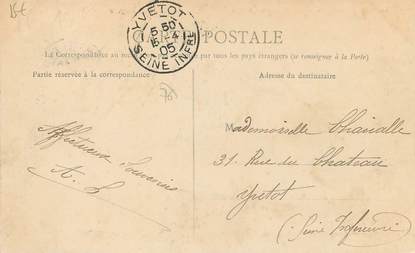 CARTE POSTALE
La Correspondance au recto par tous les pays étrangers (se renseigner à la Poste)
Partie réservée à la correspondance
Adresse du destinataire
YVETOT
5 50
16 -4
05
SEINE INFRE
Affectueux Souvenirs
A. L
Mademoiselle
31. Rue du Chateau
Yvetot
(Seine Inférieure)